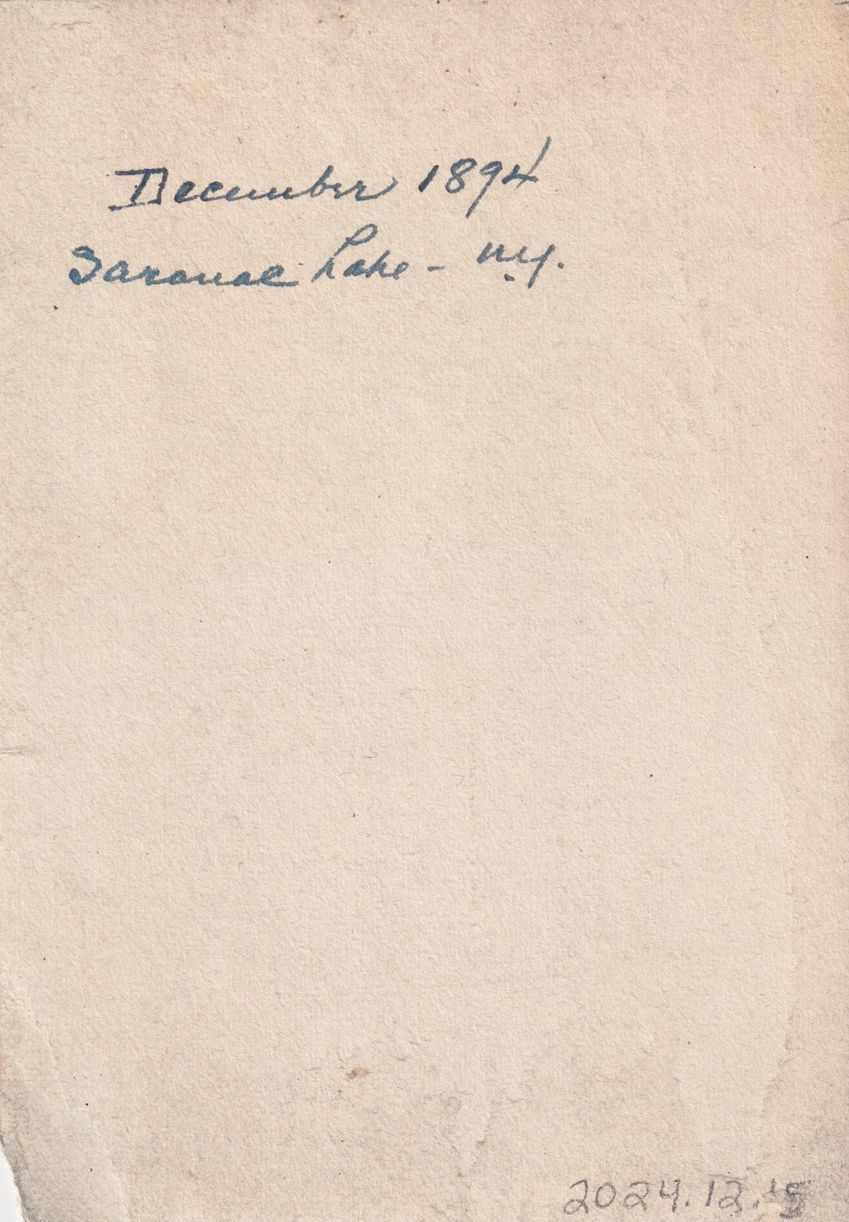 December 1894
Saranac Lake - N.Y.
2024.12.15